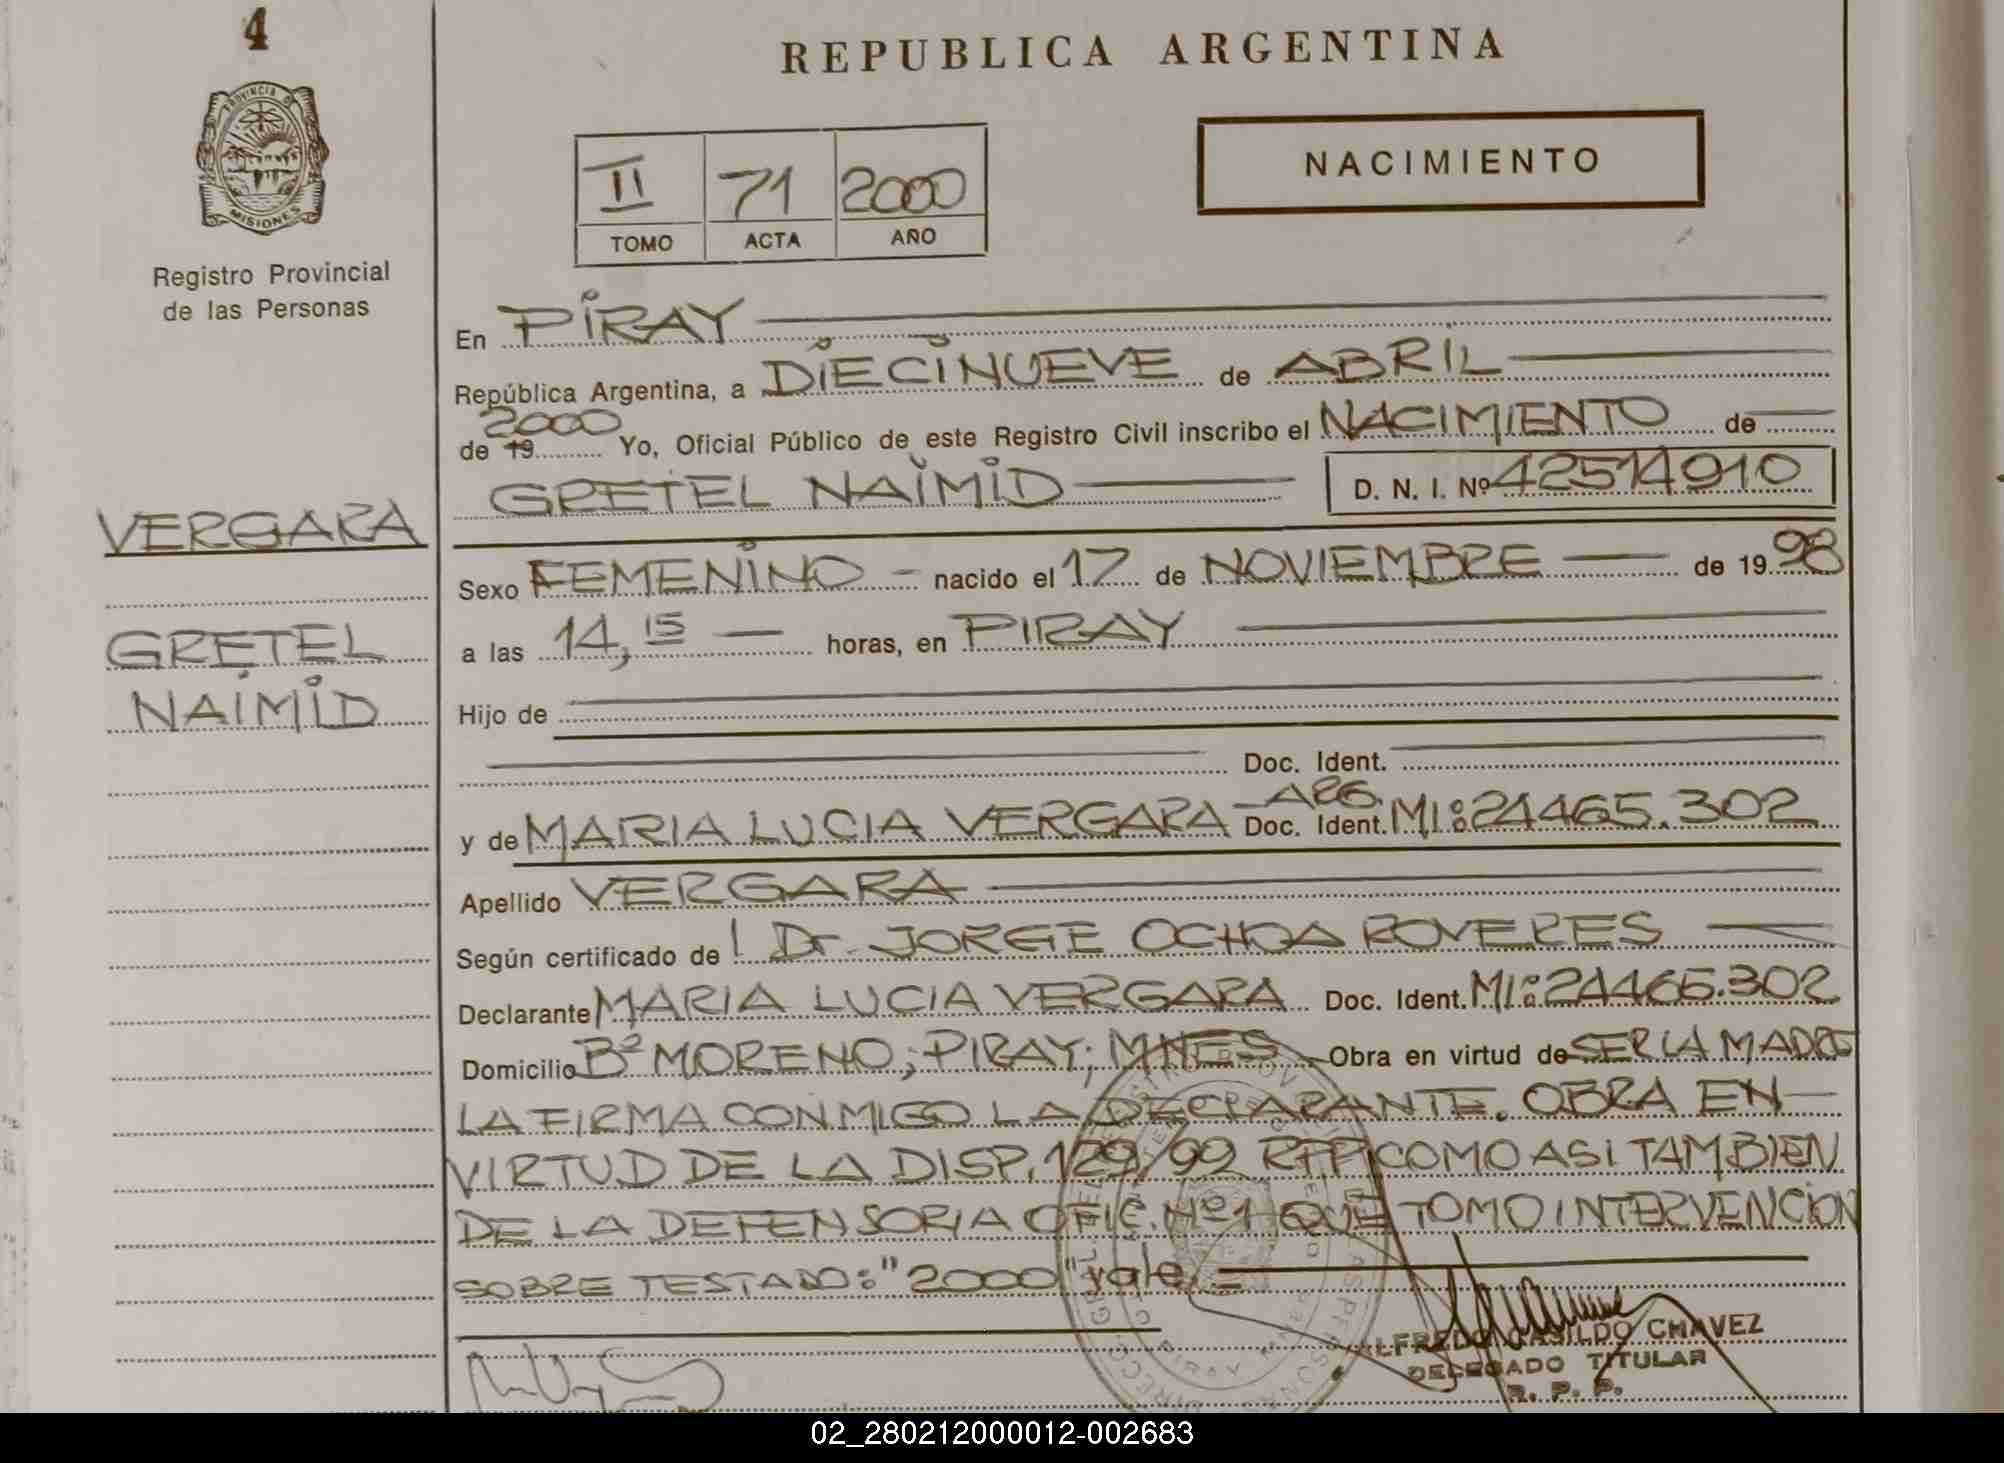 4
REPUBLICA ARGENTINA
PROVINCIA DE
MISIONES
Registro Provincial
de las Personas
II 71 2000
TOMO ACTA AÑO
NACIMIENTO
En PIRAY
República Argentina, a DIECINUEVE de ABRIL
2000
de 19 Yo, Oficial Público de este Registro Civil inscribo el NACIMIENTO de
GRETEL NAIMID D. N. I. Nº 42514910
VERGARA
GRETEL
NAIMID
Sexo FEMENINO - nacido el 17 de NOVIEMBRE de 19 98
a las 14,15 horas, en PIRAY
Hijo de
Doc. Ident.
ARG.
y de MARIA LUCIA VERGARA Doc. Ident. MI: 24465.302
Apellido VERGARA
Según certificado de Dr. JORGE OCHOA ROVERES
Declarante MARIA LUCIA VERGARA Doc. Ident. MI: 24465.302
Domicilio Bº MORENO; PIRAY; MNES Obra en virtud de SER LA MADRE
LA FIRMA CONMIGO LA DECLARANTE. OBRA EN
VIRTUD DE LA DISP. 129/99 RPP COMO ASI TAMBIEN
DE LA DEFENSORIA OFIC. Nº 1 QUE TOMO INTERVENCION
SOBRE TESTADO: "2000" vale.
ALFREDO CASILDO CHAVEZ
DELEGADO TITULAR
R. P. P.
02_280212000012-002683